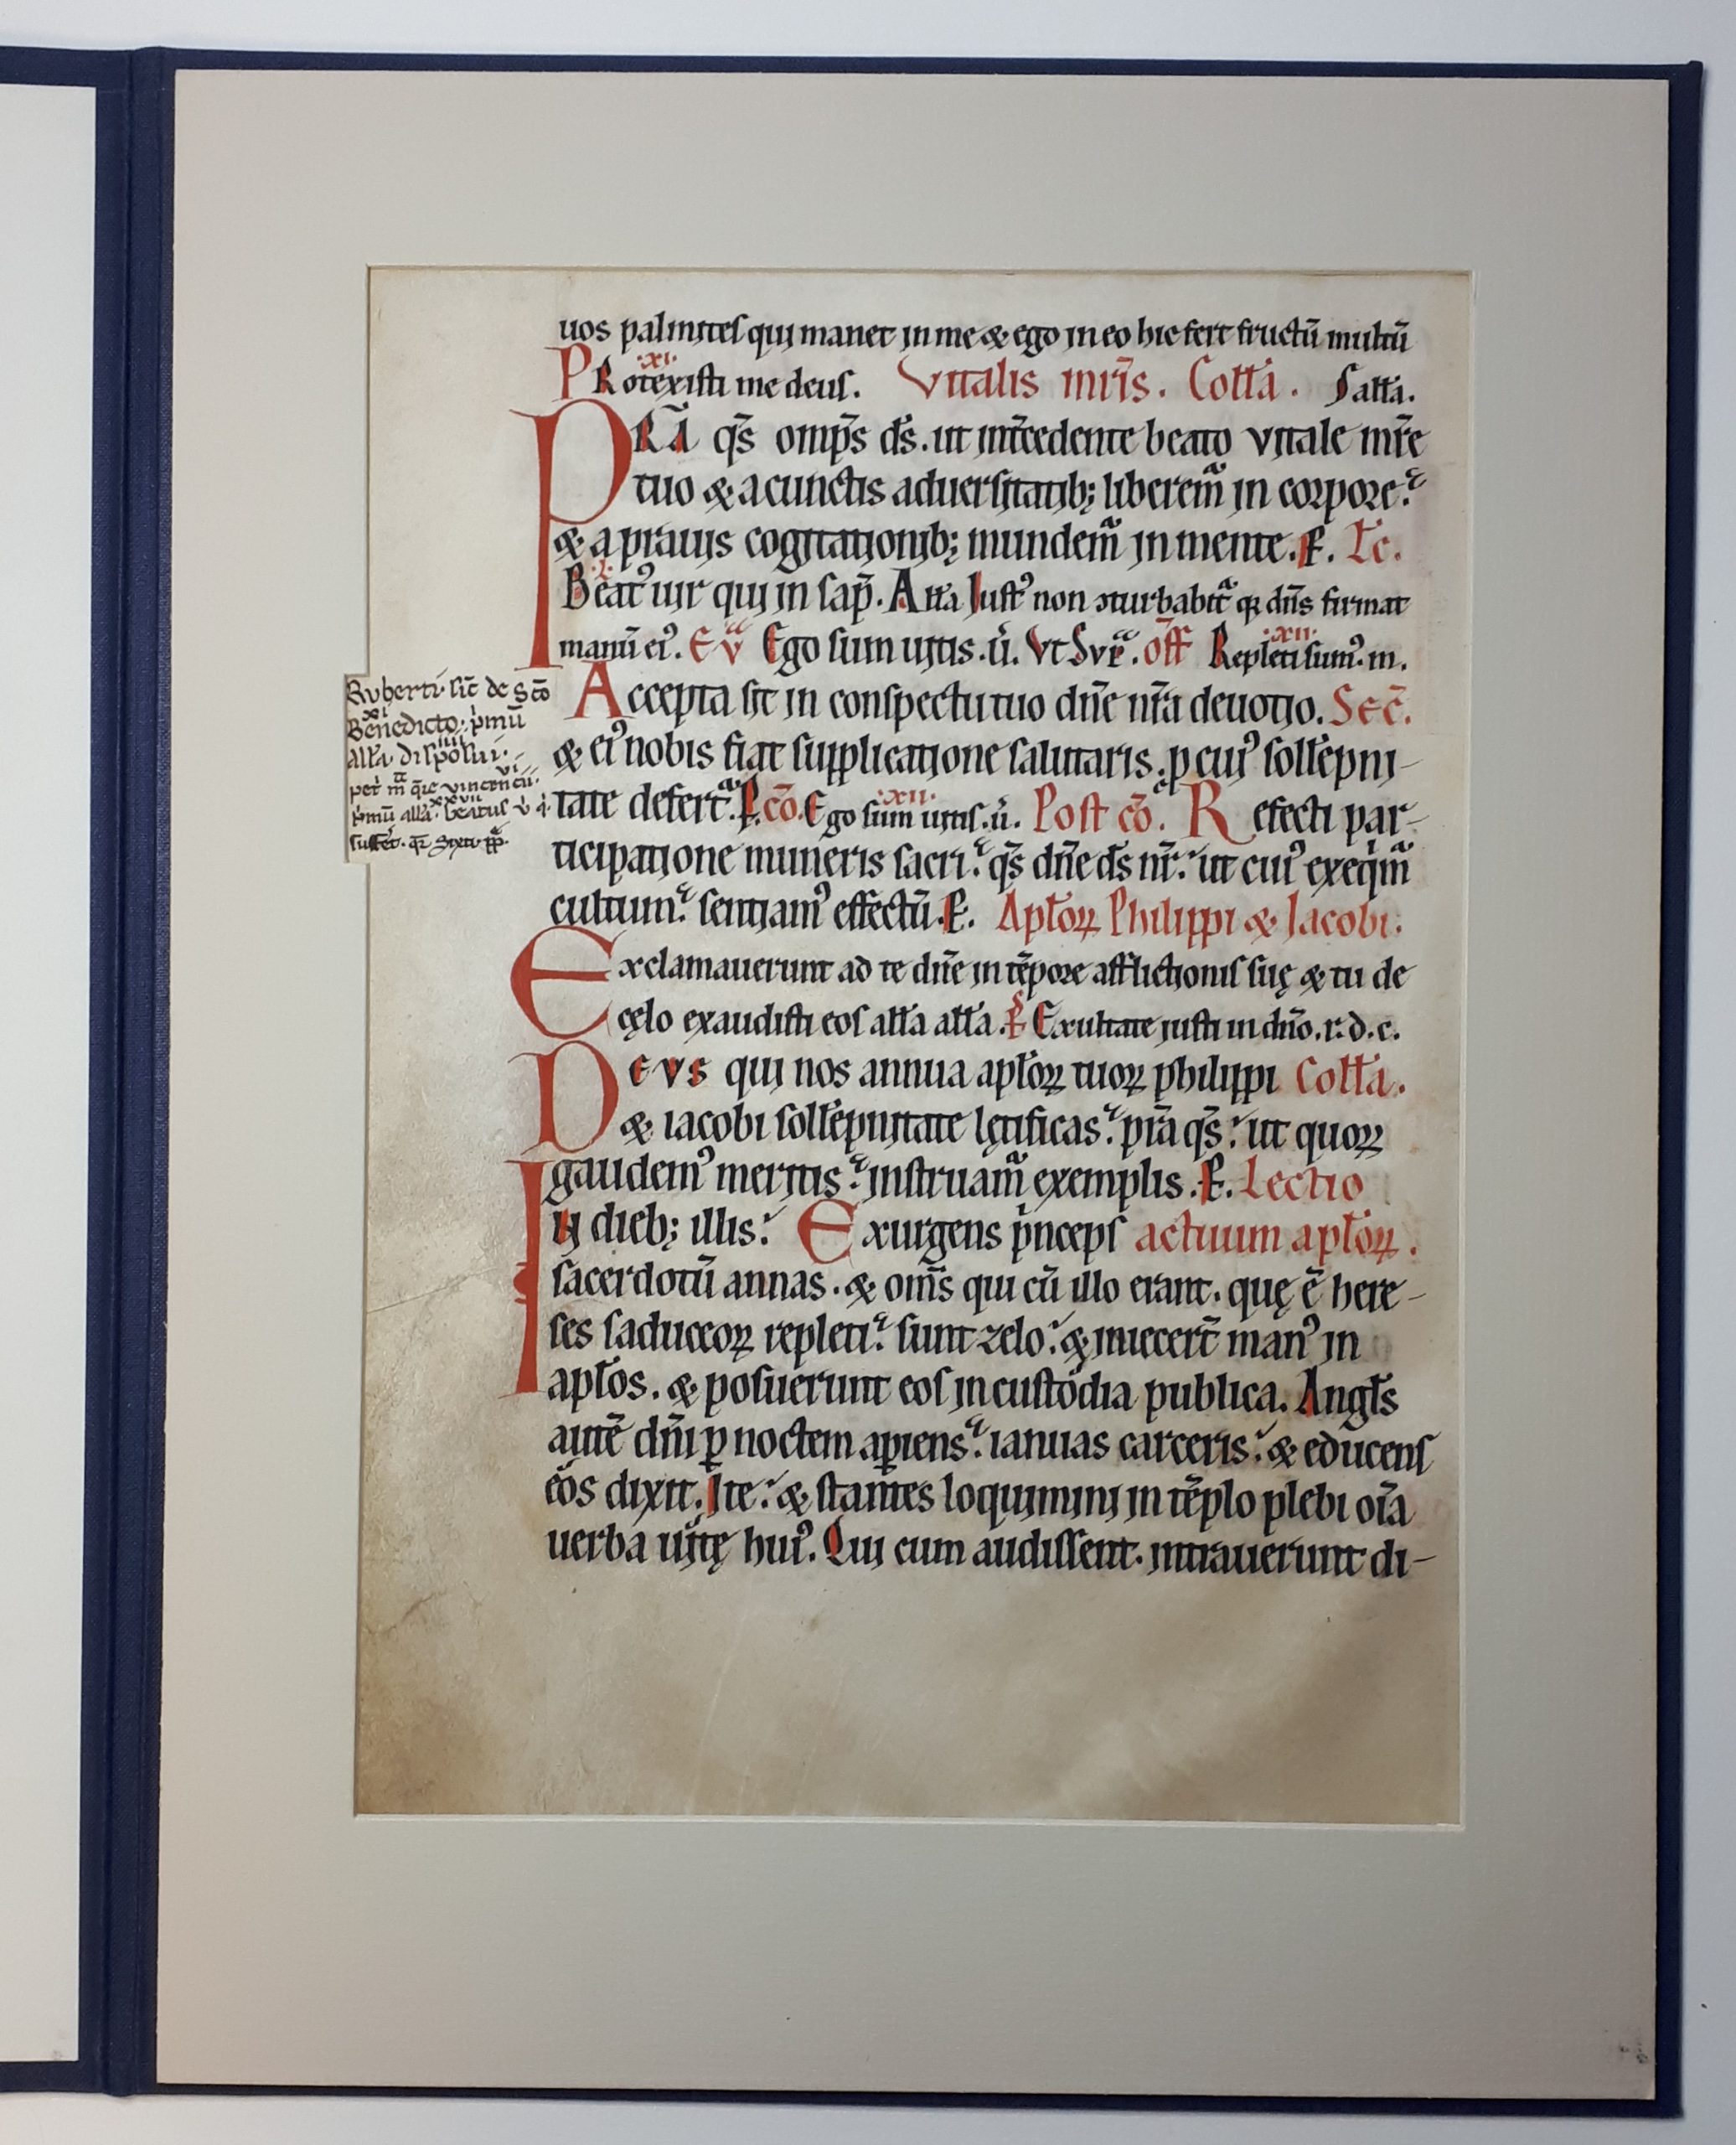 uos palmites qui manet in me & ego in eo hic fert fructū multū
.xi.
PRotexisti me deus. Vitalis mr̄is. Coll̄a. Sall̄a.
PRā q̄s omp̄s d̄s. ut int̄cedente beato vitale mr̄e
tuo & a cunctis aduersitatib; liberem̄ in corpore.
& a prauis cogitationib; mundem̄ in mente. P. Lc̄.
Beat᾿ uir qui in sap̄. All̄a Iust᾿ non ɔturbabit̄ q̄ dn̄s firmat
manū ei᾿. Ev̄ Ego sum uitis. ū. Vt Svp̄. off̄ Repleti sum᾿. m.
Accepta sit in conspectu tuo dn̄e nr̄a deuotio. Sec̄.
& ei᾿ nobis fiat supplicatione salutaris. p cui᾿ sollēpni-
tate defert̄. P. cō. Ego sum uitis. ū. Post cō. Refecti par-
ticipatione muneris sacri. q̄s dn̄e d̄s nr̄. ut cui᾿ exeq̄m̄
cultum. sentiam᾿ effectū. P. Aptoꝝ Philippi & Iacobi.
Exclamauerunt ad te dn̄e in tēpore afflictionis suę & tu de
cęlo exaudisti eos all̄a all̄a. P̄s Exultate iusti in dn̄o. r. d. c.
DEVS qui nos annua aptoꝝ tuoꝝ philippi Coll̄a.
& iacobi sollēpnitate lętificas. prā q̄s. ut quoꝝ
gaudem᾿ meritis. instruam̄ exemplis. P. Lectio
In dieb; illis. Exurgens p̄nceps actuum aptoꝝ.
sacerdotū annas. & om̄s qui cū illo erant. quę ē here-
ses saduceoꝝ repleti. sunt zelo. & iniecert̄ man᾿ in
aptos. & posuerunt eos in custodia publica. Angl̄s
autē dn̄i ꝑ noctem aꝑiens. ianuas carceris. & educens
eos dixit. Ite. & stantes loquimini in tēplo plebi oīa
uerba uitę hui᾿. Qui cum audissent. intrauerunt di-
Ruberti. sic̄ de sc̄o
Benedicto. p̄mū
all̄a. disposui.
pet̄ m̄ q̄re vincenciū.
p̄mū all̄a. beatus